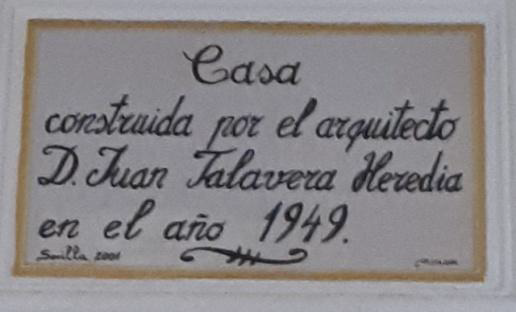 Casa
construida por el arquitecto
D. Juan Talavera Heredia
en el año 1949.
Sevilla 2001